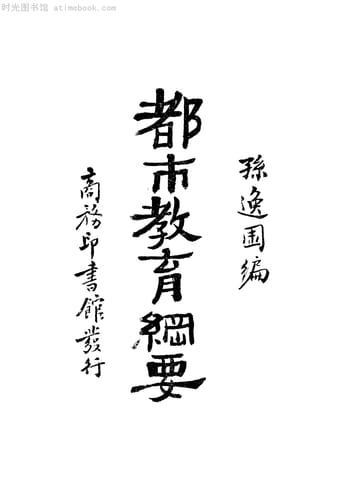 时光图书馆 atimobook.com
孫逸園編
都市教育綱要
商務印書館發行